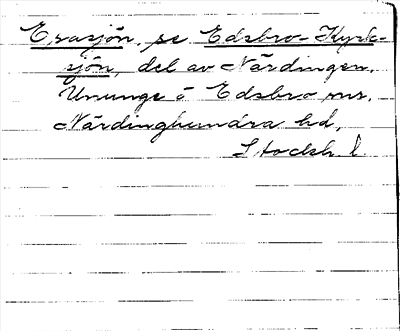 Evasjön, se Edsbro-Kyrk-
sjön, del av Närdingen,
Ununge o Edsbro snr,
Närdinghundra hd,
Stockh. l.